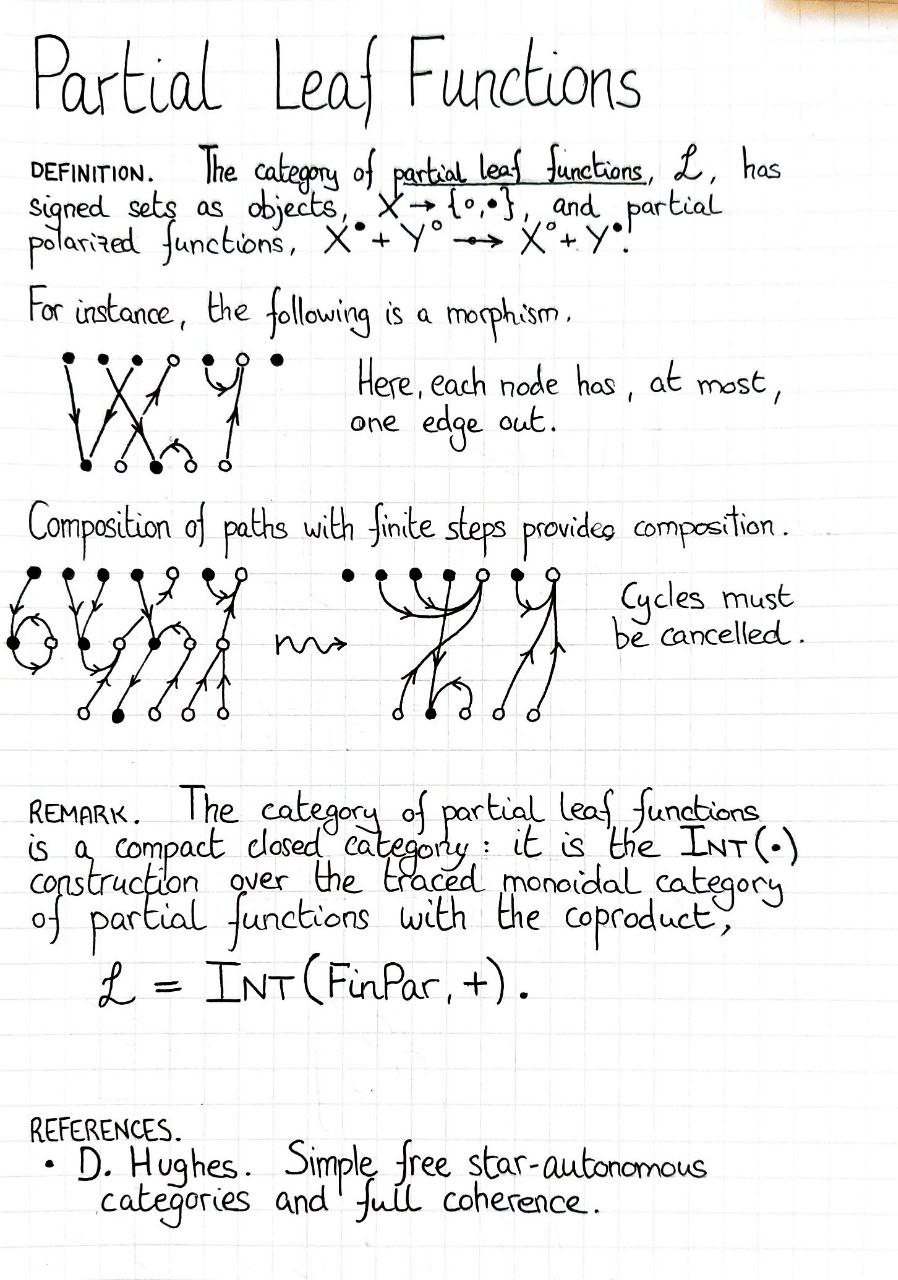 Partial Leaf Functions
DEFINITION. The category of partial leaf functions, ℒ, has
signed sets as objects, X → {∘,•}, and partial
polarized functions, X• + Y° ⇸ X° + Y•.
For instance, the following is a morphism.
Here, each node has, at most,
one edge out.
Composition of paths with finite steps provides composition.
Cycles must
be cancelled.
REMARK. The category of partial leaf functions
is a compact closed category: it is the INT(•)
construction over the traced monoidal category
of partial functions with the coproduct,
ℒ = INT(FinPar, +).
REFERENCES.
• D. Hughes. Simple free star-autonomous
categories and full coherence.